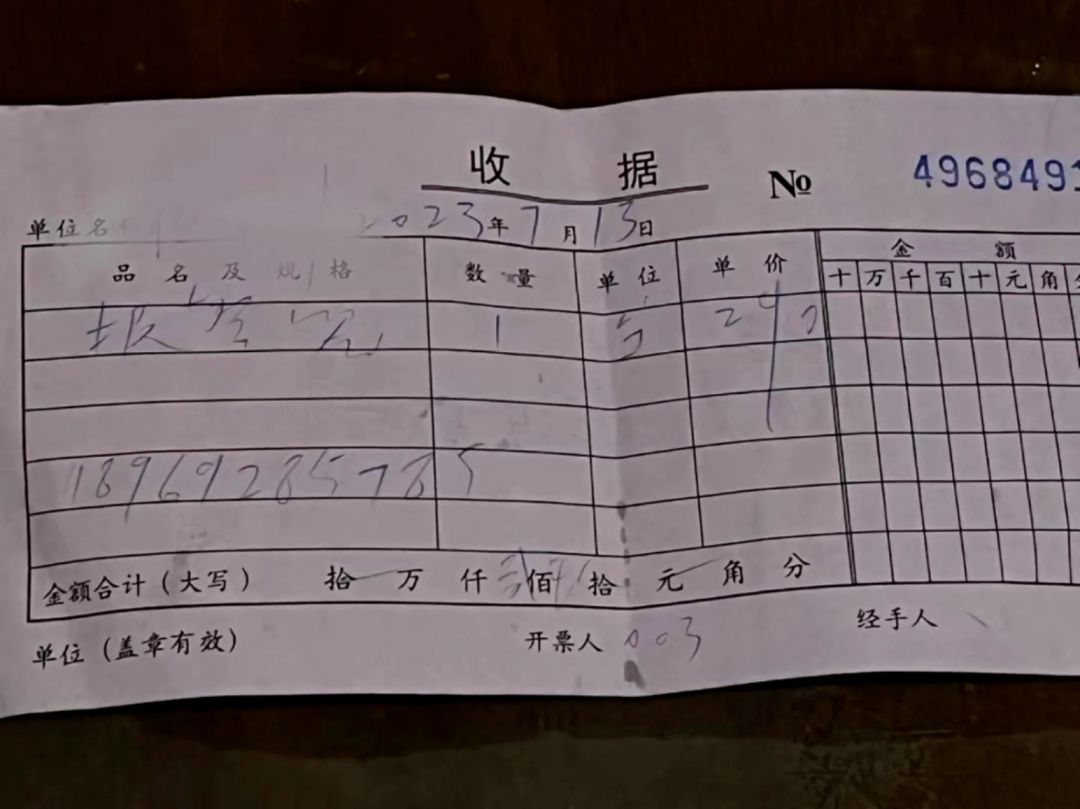 收 据
№ 4968491
单位名 2023年7月13日
品名及规格 数量 单位 单价 金额
十万千百十元角
1 290
18969285785
金额合计（大写） 拾 万 仟 佰 拾 元 角 分
单位（盖章有效） 开票人 003 经手人